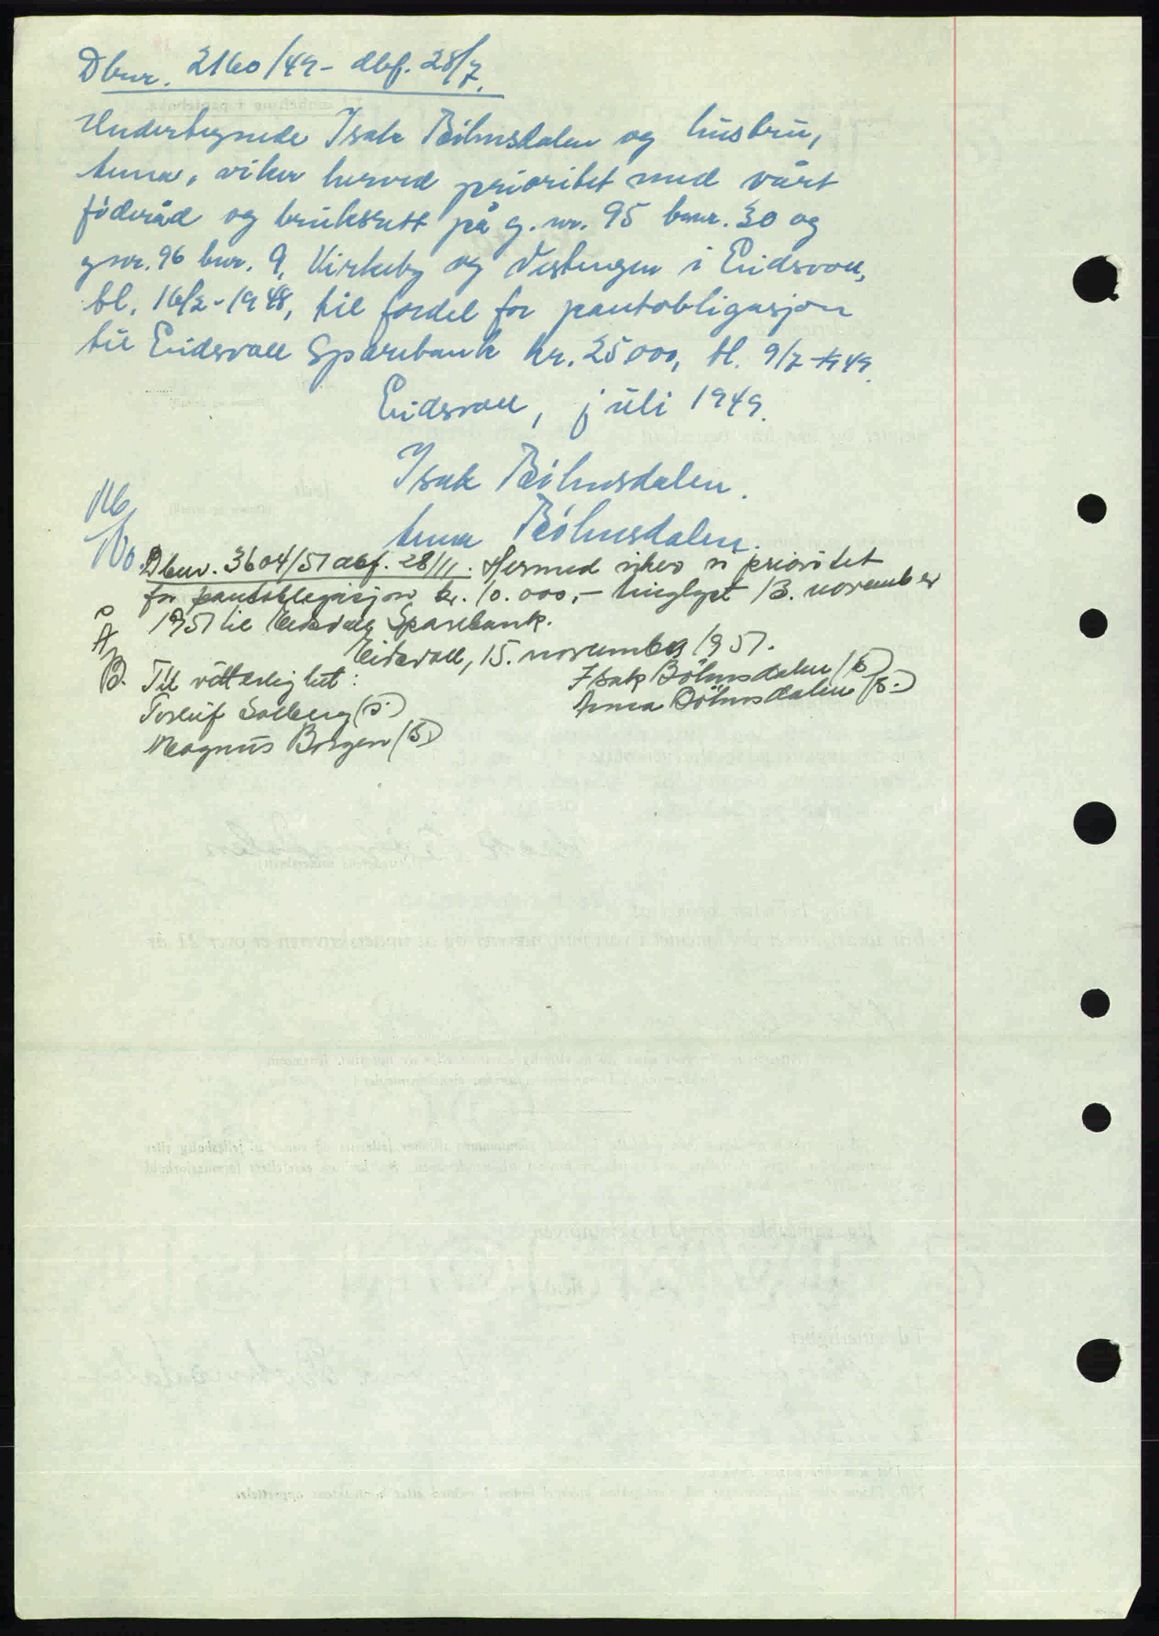 Dbnr. 2160/49 - dbf. 28/7.
Undertegnede Isak Böhnsdalen og hustru,
Anna, viker herved prioritet med vårt
föderåd og bruksrett på g. nr. 95 bnr. 30 og
gnr. 96 bnr. 9, Kirkeby og i Eidsvoll,
tl. 16/2 - 1948, til fordel for pantobligasjon
til Eidsvoll Sparebank kr. 25 000, tl. 9/7 - 1949.
Eidsvoll, juli 1949.
Isak Böhnsdalen.
Anna Böhnsdalen.
Dbnr. 3604/51 dbf. 28/11. Hermed viker vi prioritet
for pantobligasjon kr. 10.000,- tinglyst 13. november
1951 til Eidsvoll Sparebank.
Eidsvoll, 15. november 1951.
Til vitterlighet:
Isak Böhnsdalen (s)
Anna Böhnsdalen (s.)
Torleif Solberg (s.)
Magnus Borgen (s)